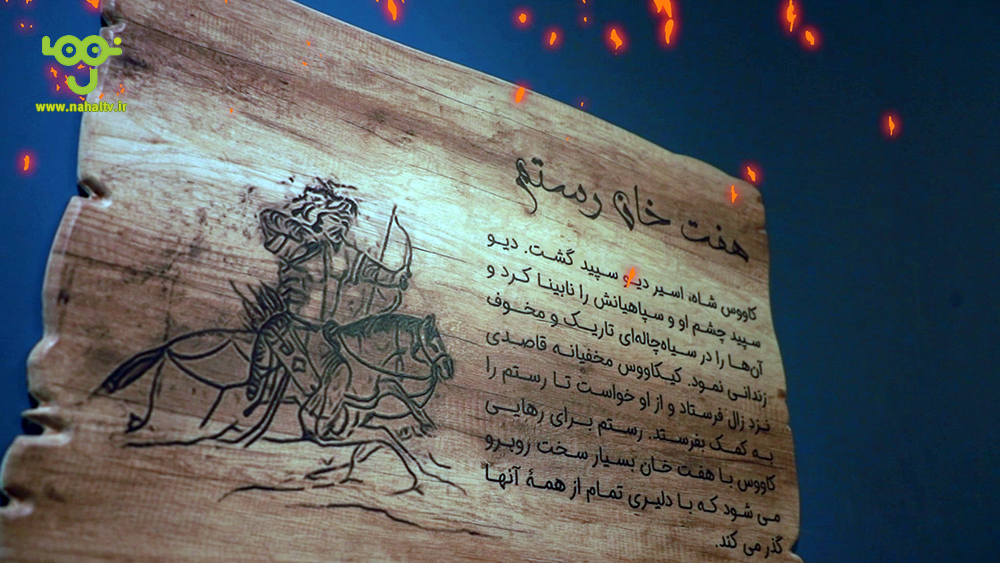 نهال
www.nahaltv.ir
هفت خان رستم
کاووس شاه، اسیر دیو سپید گشت. دیو
سپید چشم او و سپاهیانش را نابینا کرد و
آن‌ها را در سیاه‌چاله‌ای تاریک و مخوف
زندانی نمود. کیکاووس مخفیانه قاصدی
نزد زال فرستاد و از او خواست تا رستم را
به کمک بفرستد. رستم برای رهایی
کاووس با هفت خان بسیار سخت روبرو
می شود که با دلیری تمام از همهٔ آنها
گذر می کند.